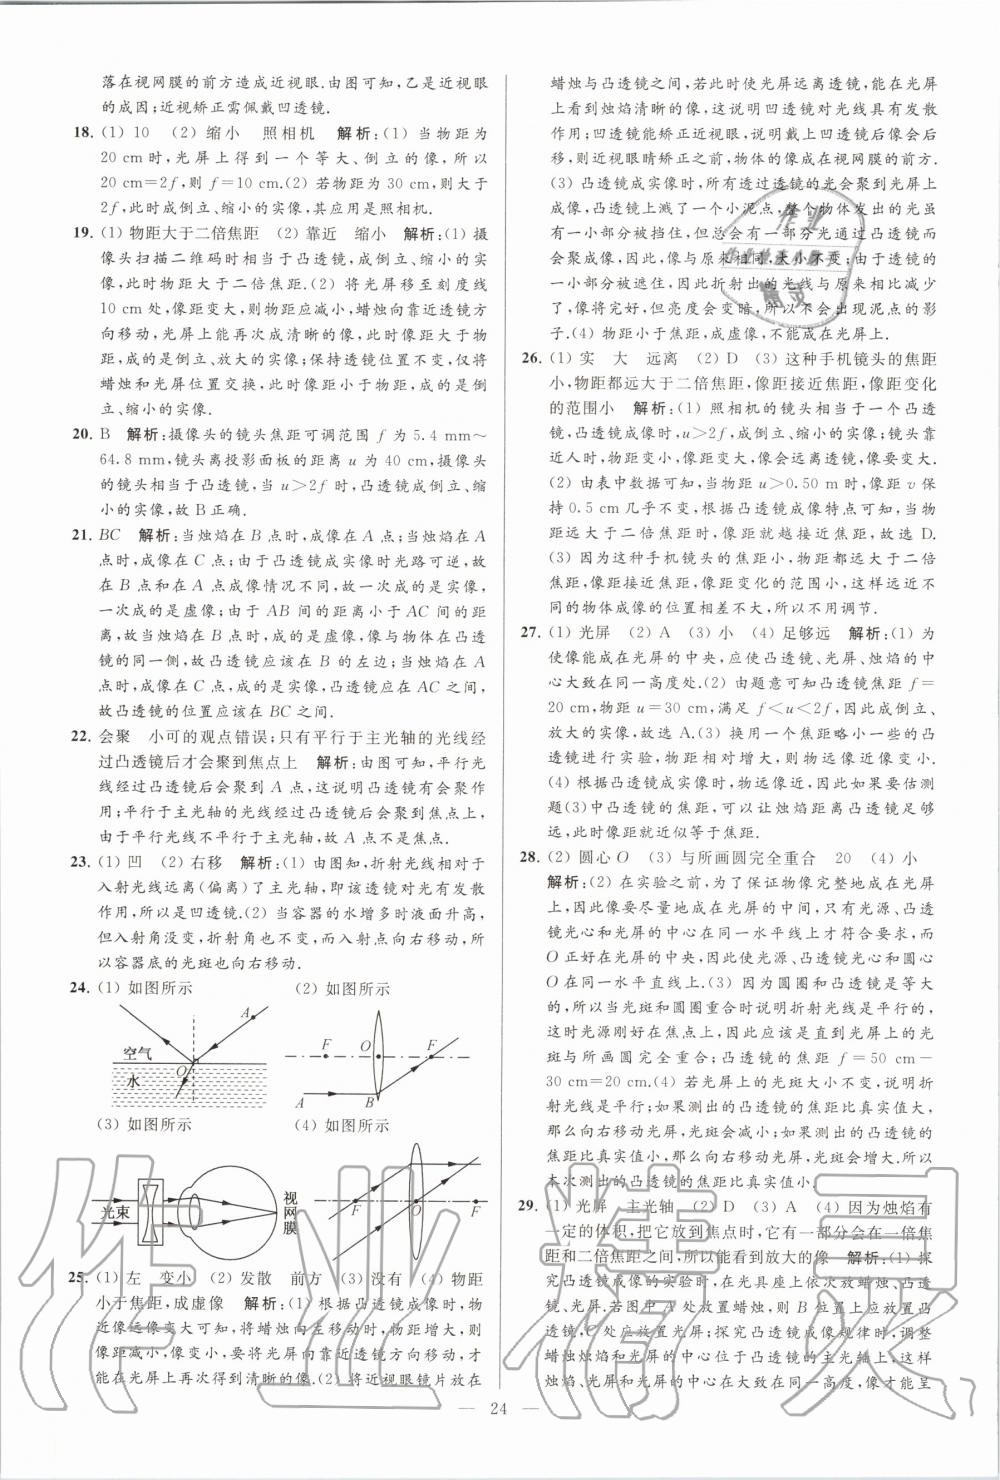 落在视网膜的前方造成近视眼.由图可知,乙是近视眼
的成因;近视矫正需佩戴凹透镜.
18. (1) 10 (2) 缩小 照相机 解析:(1) 当物距为
20 cm时,光屏上得到一个等大、倒立的像,所以
20 cm=2f,则 f=10 cm.(2) 若物距为 30 cm,则大于
2f,此时成倒立、缩小的实像,其应用是照相机.
19. (1) 物距大于二倍焦距 (2) 靠近 缩小 解析:(1) 摄
像头扫描二维码时相当于凸透镜,成倒立、缩小的实
像,此时物距大于二倍焦距.(2) 将光屏移至刻度线
10 cm处,像距变大,则物距应减小,蜡烛向靠近透镜方
向移动,光屏上能再次成清晰的像,此时像距大于物
距,成的是倒立、放大的实像;保持透镜位置不变,仅将
蜡烛和光屏位置交换,此时像距小于物距,成的是倒
立、缩小的实像.
20. B 解析:摄像头的镜头焦距可调范围 f 为 5.4 mm～
64.8 mm,镜头离投影面板的距离 u 为 40 cm,摄像头
的镜头相当于凸透镜,当 u＞2f 时,凸透镜成倒立、缩
小的实像,故 B正确.
21. BC 解析:当烛焰在 B 点时,成像在 A 点;当烛焰在
A 点时,成像在 C 点;由于凸透镜成实像时光路可逆,故
在 B 点和在 A 点成像情况不同,故一次成的是实像,
一次成的是虚像;由于 AB 间的距离小于 AC 间的距
离,故当烛焰在 B 点时,成的是虚像,像与物体在凸透
镜的同一侧,故凸透镜应该在 B 的左边;当烛焰在 A
点时,成像在 C 点,成的是实像,凸透镜应在 AC 之间,
故凸透镜的位置应该在 BC 之间.
22. 会聚 小可的观点错误;只有平行于主光轴的光线经
过凸透镜后才会聚到焦点上 解析:由图可知,平行光
线经过凸透镜后会聚到 A 点,这说明凸透镜有会聚作
用;平行于主光轴的光线经过凸透镜后会聚到焦点上,
由于平行光线不平行于主光轴,故 A 点不是焦点.
23. (1) 凹 (2) 右移 解析:(1) 由图知,折射光线相对于
入射光线远离(偏离)了主光轴,即该透镜对光有发散
作用,所以是凹透镜.(2) 当容器的水增多时液面升高,
但入射角没变,折射角也不变,而入射点向右移动,所
以容器底的光斑也向右移动.
24. (1) 如图所示 (2) 如图所示
A
空气
O
水
F O F
A B
(3) 如图所示 (4) 如图所示
光束
视网膜
F O F
25. (1) 左 变小 (2) 发散 前方 (3) 没有 (4) 物距
小于焦距,成虚像 解析:(1) 根据凸透镜成像时,物
近像远像变大可知,将蜡烛向左移动时,物距增大,则
像距减小,像变小,需要将光屏向靠近透镜方向移动,才
能在光屏上再次得到清晰的像.(2) 将近视眼镜片放在
蜡烛与凸透镜之间,若此时使光屏远离透镜,能在光屏
上看到烛焰清晰的像,这说明凹透镜对光线具有发散
作用;凹透镜能矫正近视眼,说明戴上凹透镜后像会后
移,则近视眼睛矫正之前,物体的像成在视网膜的前方.
(3) 凸透镜成实像时,所有透过透镜的光会聚到光屏上
成像,凸透镜上溅了一个小泥点,整个物体发出的光虽
有一小部分被挡住,但总会有一部分光通过凸透镜而
会聚成像,因此,像与原来相同,大小不变;由于透镜的
一小部分被遮住,因此折射出的光线与原来相比减少
了,像将完好,但亮度会变暗,所以不会出现泥点的影
子.(4) 物距小于焦距,成虚像,不能成在光屏上.
26. (1) 实 大 远离 (2) D (3) 这种手机镜头的焦距
小,物距都远大于二倍焦距,像距接近焦距,像距变化
的范围小 解析:(1) 照相机的镜头相当于一个凸透
镜,凸透镜成像时,u＞2f,成倒立、缩小的实像;镜头靠
近人时,物距变小,像距变大,会远离透镜,像要变大.
(2) 由表中数据可知,当物距 u＞0.50 m时,像距 v 保
持 0.5 cm几乎不变,根据凸透镜成像特点可知,当物
距远大于二倍焦距时,像距就越接近焦距,故选 D.
(3) 因为这种手机镜头的焦距小,物距都远大于二倍
焦距,像距接近焦距,像距变化的范围小,这样远近不
同的物体成像的位置相差不大,所以不用调节.
27. (1) 光屏 (2) A (3) 小 (4) 足够远 解析:(1) 为
使像能成在光屏的中央,应使凸透镜、光屏、烛焰的中
心大致在同一高度处.(2) 由题意可知凸透镜焦距 f=
20 cm,物距 u=30 cm,满足 f＜u＜2f,因此成倒立、
放大的实像,故选 A.(3) 换用一个焦距略小一些的凸
透镜进行实验,物距不变,焦距变小,则物远像近像变小.
(4) 根据凸透镜成实像时,物远像近,因此如果要估测
题(3)中凸透镜的焦距,可以让烛焰距离凸透镜足够
远,此时像距就近似等于焦距.
28. (2) 圆心 O (3) 与所画圆完全重合 20 (4) 小
解析:(2) 在实验之前,为了保证物像完整地成在光屏
上,因此像要尽量地成在光屏的中间,只有光源、凸透
镜光心和光屏的中心在同一水平线上才符合要求,而
O 正好在光屏的中央,因此使光源、凸透镜光心和圆心
O 在同一水平直线上.(3) 因为圆面和凸透镜是等大
的,所以当光斑和圆圈重合时说明折射光线是平行的,
这时光源刚好在焦点上,因此应该是直到光屏上的光
斑与所画圆完全重合;凸透镜的焦距 f=50 cm－
30 cm=20 cm.(4) 若光屏上的光斑大小不变,说明折
射光线是平行;如果测出的凸透镜的焦距比真实值大,
那么向右移动光屏,光斑会减小;如果测出的凸透镜的
焦距比真实值小,那么向右移动光屏,光斑会增大.所以
本次测出的焦距比真实值小.
29. (1) 光屏 主光轴 (2) D (3) A (4) 因为烛焰有
一定的体积,把它放到焦点时,它有一部分会在一倍焦
距和二倍焦距之间,所以能看到放大的像 解析:(1) 探
究凸透镜成像的实验时,在光具座上依次放蜡烛、凸透
镜、光屏.若图中 A 处放置蜡烛,则 B 位置上应放置凸
透镜,C 处应放置光屏;探究凸透镜成像规律时,调整
蜡烛烛焰和光屏的中心位于凸透镜的主光轴上,这样
烛焰、凸透镜和光屏的中心在大致在同一高度,像才能呈
— 24 —
作业精灵